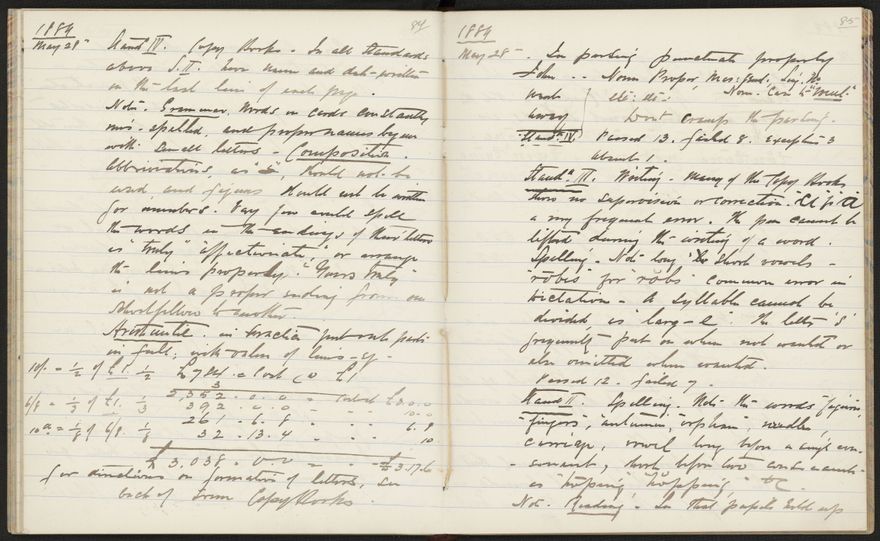 1884
84
May 28th Stand IV. Copy Books - In all Standards
above S.II. have name and date written
in the last line of each page.
Note. Grammar. Words on cards constantly
mis-spelled, and proper names begun
with small letters - Composition.
Abbreviations, as "&", should not be
used and figures should not be written
for numbers. Very few could spell
the words in the endings of their letters
as "truly" "affectionate", or arrange
the lines properly. "Yours truly"
is not a proper ending from one
schoolfellow to another.
Arithmetic. in Practice put out parts
in full, with value of lines - eg.
10/- = 1/2 of £1. 1/2
3
2,352 . 0 . 0
6/8 = 1/3 of £1. 1/3 392 . 0 . 0
261 . 6 . 8 6 . 8
10d = 1/8 of 6/8. 1/8 32 . 13 . 4 10
£ 3,038 . 0 0 £3.17.6
for directions on formation of letters, see
back of some Copy Books.
1884
85
May 28 - In parsing punctuate properly
John -- Noun Proper, Mas: Gend., Sing. No.
Nom. Case to "
went etc: etc:
away Don't cramp the parsing.
Stand IV. Passed 13. failed 8. exception 3
absent 1.
Stand III. Writing - Many of the Copy Books
show no supervision or correction.
a very frequent error. The pen cannot be
lifted during the writing of a word.
Spelling - Note long & short vowels -
"robes" for "robs" common error in
Dictation - A syllable cannot be
divided as "larg-e". The letter 's'
frequently put on when not wanted or
else omitted when wanted.
Passed 12. failed 7.
Stand II. Spelling. Note the words
"fingers", autumn, orphan, needles,
carriage, vowel long before a single con-
-sonant, short before two consonants -
as "hoping" "hopping" &c.
Note. Reading - In that, pupils hold up